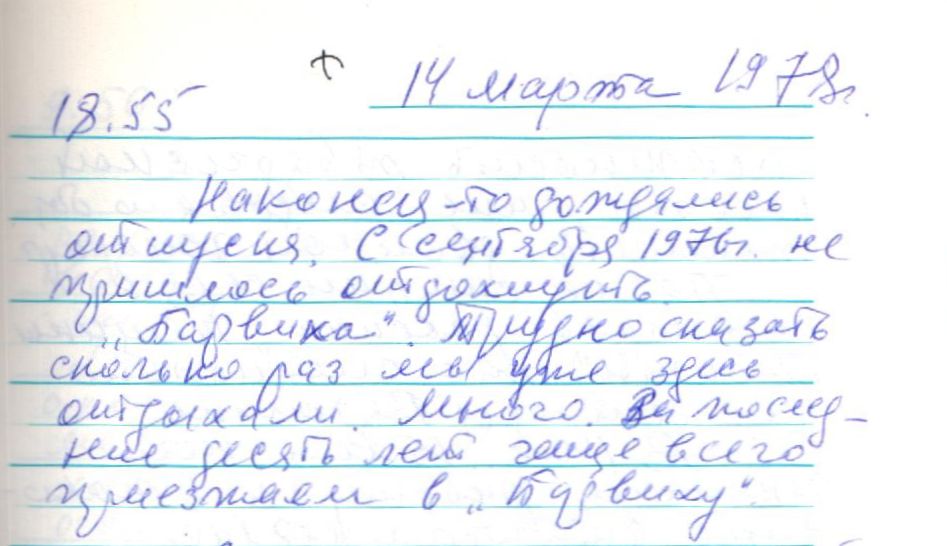 14 марта 1978г.
18.55
Наконец-то дождались
отпуска. С сентября 1976г. не
пришлось отдохнуть.
„Барвиха“. Трудно сказать
сколько раз мы уже здесь
отдыхали. Много. За послед-
ние десять лет чаще всего
приезжаем в „Барвиху“.